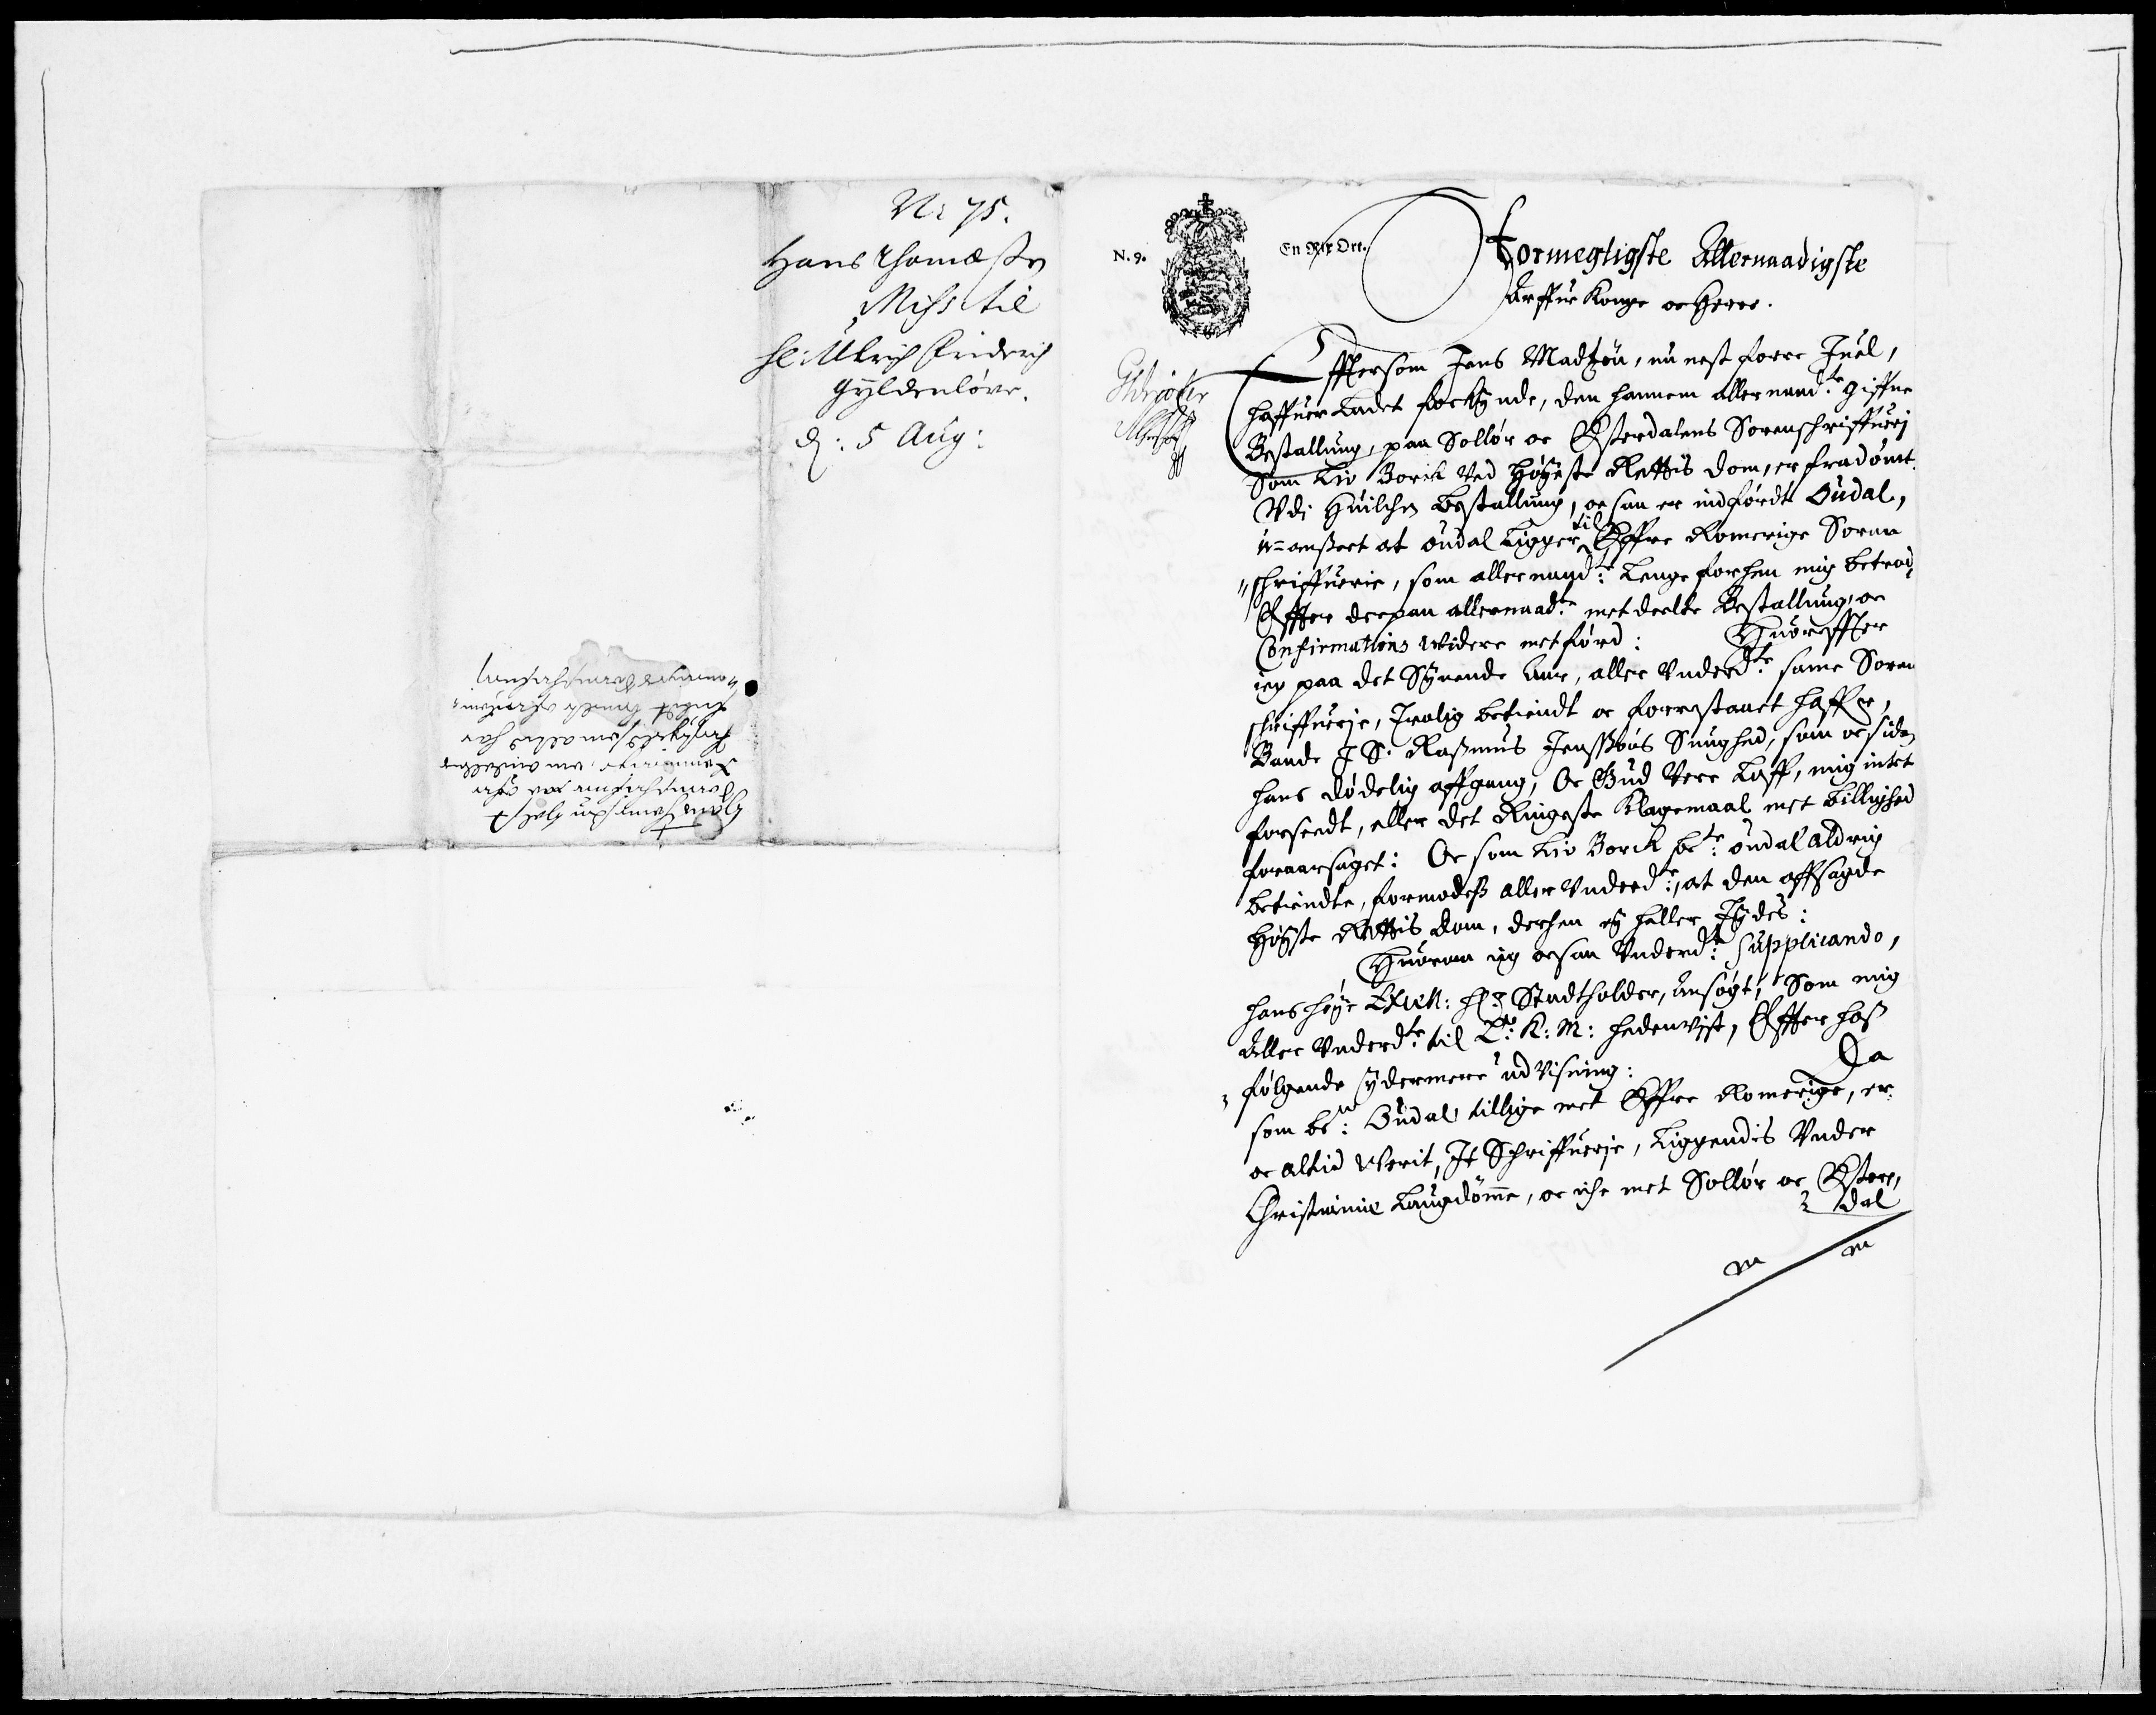 No 75.
Hans Thomæsøn
Miss: til
H: Ulrich Friderich
Gyldenløve.
d: 5 Aug:
N. 9.
En Rix Ort.
Stormegtigste Allernaadigste
Arffue Konge oc Herre.
Effttersom Jens Madtzøn, nu nest forre Juel,
haffuer Ladet forkÿnde, den hannem allernaad:te giffne
Bestallung, paa Sollør oc Østerdalens Sorenschriffuerj
Som Liv Borck Ved Høÿeste Rettis dom, er fradømt.
Vdi Huilchen bestallung, oc saa er indførdt Oudal,
u-anseet at oudal Ligger til Øffre Romerige Soren
schriffuerie, som allernaad:te Lenge forhen mig betroed
Effter derpaa allernaad:te meddeelte Bestallung, oc
Confirmations widere metførd: Huoreffter
ieg paa det Sÿvende Aar, aller Vnderd:te same Soren
schriffuerje, Trolig betiendt oc forrestaaet haffer,
Baade J S. Rasmus Jenssøns Suaghed, som oc siden
hans dødelig affgang, Oc Gud Vere Loff, mig intet
forseedt, eller det Ringeste Klagemaal met billighed
foraarsaget: Oc som Liv Borck be:te oudal aldrig
betiendte, formodes aller Vnderd:te, at den affsagde
Høÿste Rettis dom, derhen eÿ heller Tÿdes:
Huorom ieg ocsaa Vnderd:te Supplicando,
hans høÿe Excell: H:r Stadtholder, ansøgt, Som mig
Aller Vnderd:te til E:rs K: M: hedenvist, Effter hos
følgende ÿdermere udVisning: Da
som be:te Oudal tillige met Øffre Romerige, er
oc altid Verit, Jt Schriffuerje, Liggendis Vnder
Christianiæ Laugdømme, oc iche met Sollør oc Øster,
dal